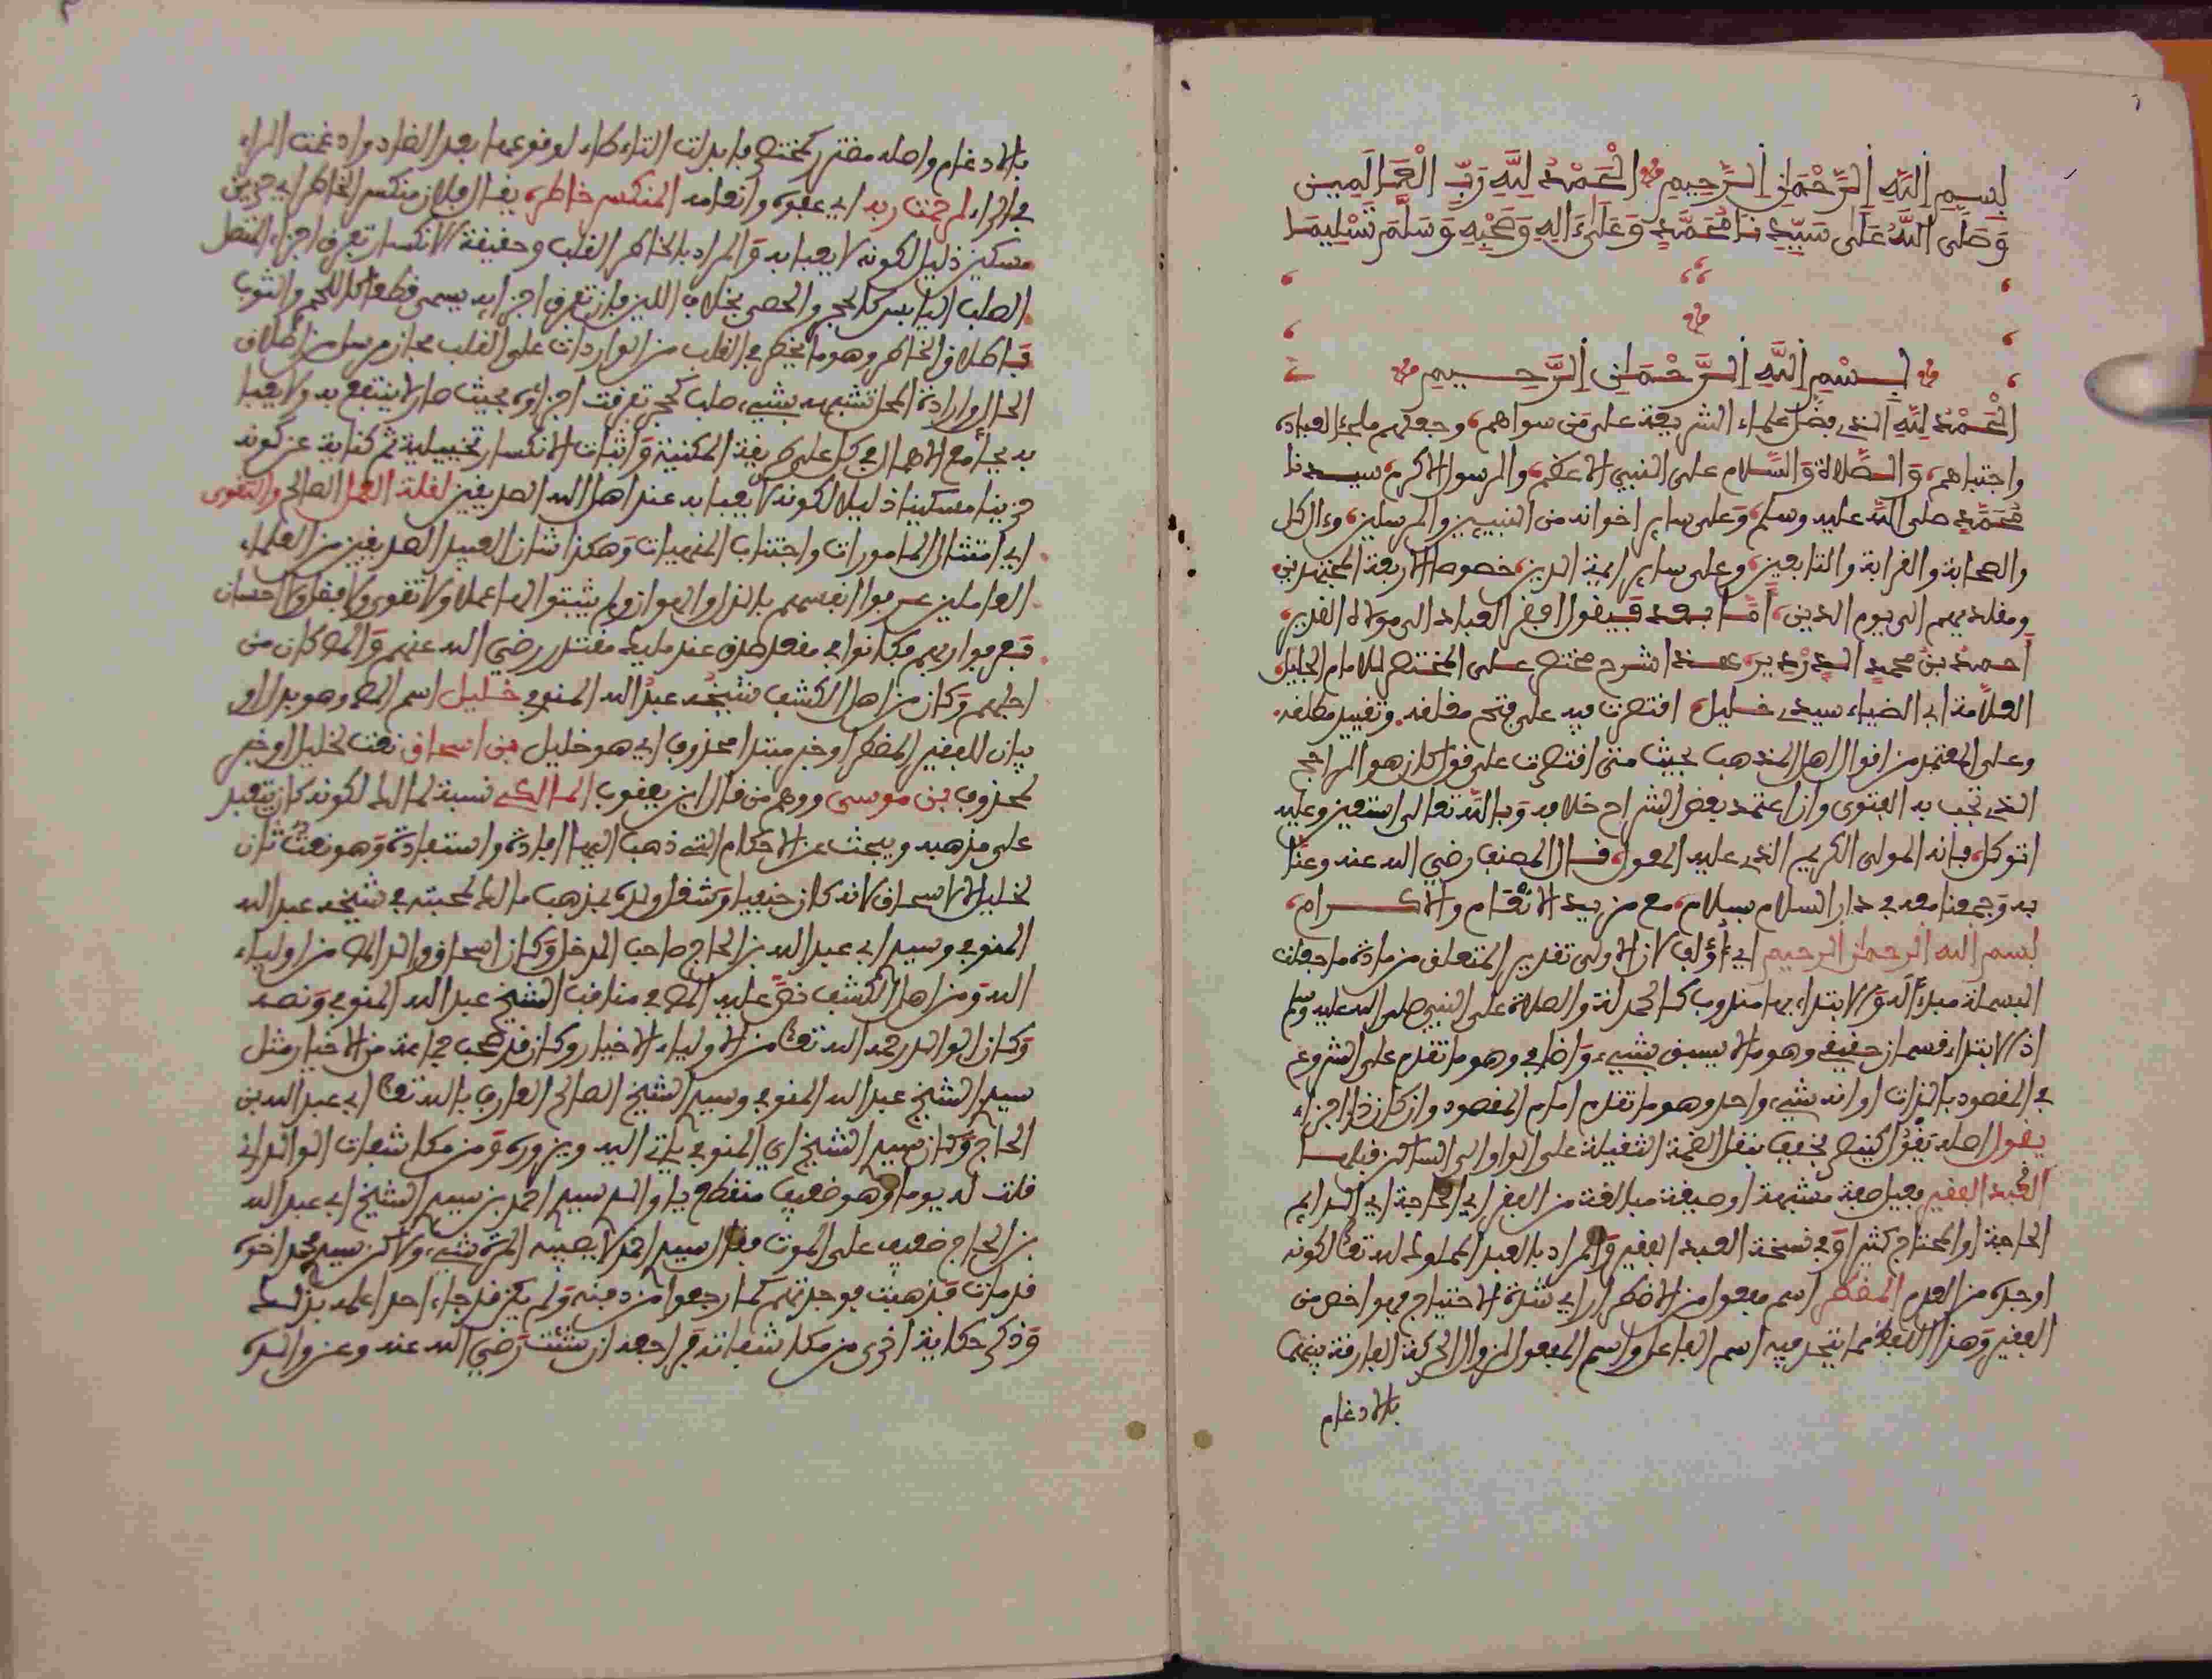 بسم الله الرحمن الرحيم الحمد لله رب العالمين
وصلى الله على سيدنا محمد وعلى ءاله وصحبه وسلم تسليما
بسم الله الرحمن الرحيم
الحمد لله الذي فضل علماء الشريعة على من سواهم وجعلهم ملجأ العباد
واجتباهم والصلاة والسلام على النبي الاعظم والرسول الاكرم سيدنا
محمد صلى الله عليه وسلم وعلى ساير اخوانه من النبيين والمرسلين وءال كل
والصحابة والقرابة والتابعين وعلى ساير ايمة الدين خصوصا الاربعة المجتهدين
ومقلديهم الى يوم الدين اما بعد فيقول افقر العباد الى مولاه القدير
احمد بن محمد الدردير هذا شرح مختصر على المختصر للامام الجليل
العلامة ابي الضياء سيدي خليل اقتصرت فيه على فتح مغلقه وتقييد مطلقه
وعلى المعتمد من اقوال اهل المذهب بحيث متى اقتصرت على قول كان هو الراجح
الذي تجب به الفتوى وان اعتمد بعض الشراح خلافه وبالله تعالى استعين وعليه
اتوكل فانه المولى الكريم الذي عليه المعول قال المصنف رضي الله عنه وعنا
به وجمعنا معه في دار السلام بسلام مع مزيد الانعام والاكرام
بسم الله الرحمن الرحيم اي أؤلف لان الاولى تقدير المتعلق من مادة ما جعلت
البسملة مبدأ له والابتداء بها مندوب كالحمدلة والصلاة على النبي صلى الله عليه وسلم
اذ الابتداء قسمان حقيقي وهو ما لا يسبق بشيء واضافي وهو ما تقدم على الشروع
في المقصود بالذات او انه شيء واحد وهو ما تقدم امام المقصود وان كان ذا اجزاء
يقول اصله يقول كينصر فخفف بنقل الضمة الثقيلة على الواو الى الساكن قبلها
العبد الفقير فعيل صفة مشبهة او صيغة مبالغة من الفقر اي الحاجة اي الدايم
الحاجة او المحتاج كثيرا وفي نسخة العبد الفقير والمراد بالعبد المملوك لله تعالى لكونه
اوجده من العدم المضطر اسم مفعول من الاضطرار اي شدة الاحتياج فهو اخص من
الفقير وهذا اللفظ مما يتحد فيه اسم الفاعل واسم المفعول لزوال الحركة الفارقة بينهما
بالادغام
بالادغام واصله مضترر كمختصر فابدلت التاء طاء لوقوعها بعد الضاد وادغمت الراء
في الراء لرحمت ربه اي عفوه وانعامه المنكسر خاطره يقال فلان منكسر الخاطر اي حزين
مسكين ذليل لكونه لا يعبأ به والمراد بالخاطر القلب وحقيقة الانكسار تفرق اجزاء المتصل
الصلب اليابس كالحجر والحصى بخلاف اللين فان تفرق اجزايه يسمى قطعا كاللحم والثوب
فاطلاق الخاطر وهو ما يخطر في القلب من الواردات على القلب مجاز مرسل من اطلاق
الحال وارادة المحل شبهه بشيء صلب كحجر تفرقت اجزاؤه بحيث صار لا ينتفع به ولا يعبأ
به بجامع الاهمال في كل على طريقة المكنية واثبات الانكسار تخييلية ثم كناية عن كونه
حزينا مسكينا ذليلا لكونه لا يعبأ به عند اهل الله الصديقين لقلة العمل الصالح والتقوى
اي امتثال المامورات واجتناب المنهيات وهكذا شأن العبيد الصديقين من العلماء
العاملين عرفوا انفسهم بالذل والهوان ولم يثبتوا لها عملا ولا تقوى ولا فضلا ولا احسان
فعرفوا ربهم فكانوا في مقعد صدق عند مليك مقتدر رضي الله عنهم والمص كان من
اجلهم وكان من اهل الكشف شيخه عبد الله المنوفي خليل اسم المص وهو بدل او
بيان للعبد المضطر او خبر مبتدا محذوف اي هو خليل بن اسحاق نعت لخليل او خبر
لمحذوف بن موسى ووهم من قال ابن يعقوب المالكي نسبة لمالك لكونه كان يتعبد
على مذهبه ويبحث عن الاحكام التي ذهب اليها افادة واستفادة وهو نعت ثان
لخليل لا لاسحاق لانه كان حنفيا وشغل ولده بمذهب مالك لمحبته في شيخه عبد الله
المنوفي وسيد ابي عبد الله بن الحاج صاحب المدخل وكان اسحاق والد المص من اولياء
الله ومن اهل الكشف نص عليه المص في مناقب الشيخ عبد الله المنوفي ونصه
وكان الوالد رحمه الله تعالى من الاولياء الاخيار وكان قد صحب جماعة من الاخيار مثل
سيد الشيخ عبد الله المنوفي وسيد الشيخ الصالح العارف بالله تعالى ابي عبد الله بن
الحاج وكان سيد الشيخ اي المنوفي ياتي اليه ويزوره ومن مكاشفات الوالد اني
قلت له يوما وهو ضعيف منقطع يا والد سيد احمد بن سيد الشيخ ابي عبد الله
بن الحاج ضعيف على الموت فقال سيد احمد لا يصيبه المرة شيء ولاكن سيد محمد اخوه
قد مات فذهبت فوجدتهم كما رجعوا من دفنه ولم يكن قد جاء احد اعلمه بذلك
وذكر حكاية اخرى من مكاشفاته فراجعه ان شئت رضي الله عنه وعن والده